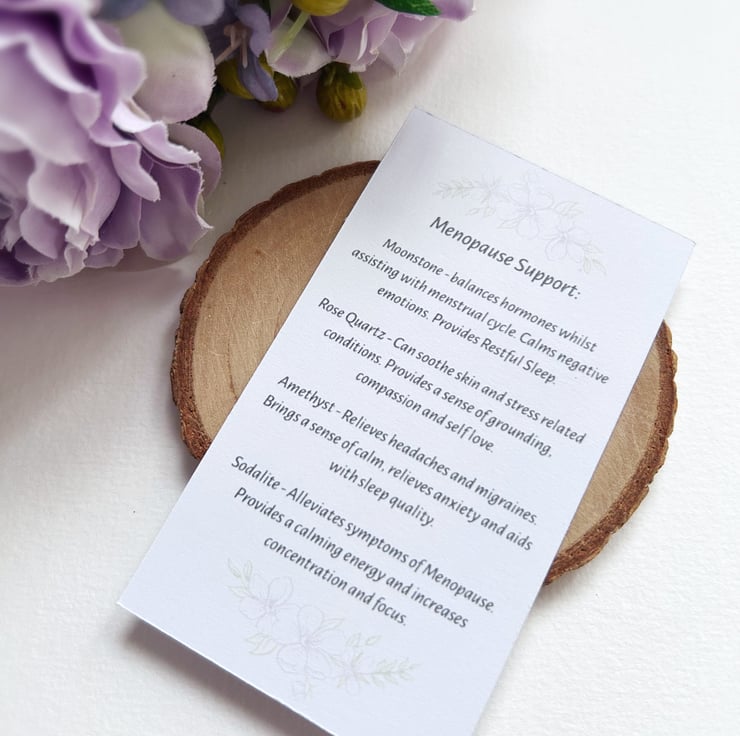 Menopause Support:
Moonstone - balances hormones whilst
assisting with menstrual cycle. Calms negative
emotions. Provides Restful Sleep.
Rose Quartz - Can soothe skin and stress related
conditions. Provides a sense of grounding,
compassion and self love.
Amethyst - Relieves headaches and migraines.
Brings a sense of calm, relieves anxiety and aids
with sleep quality.
Sodalite - Alleviates symptoms of Menopause.
Provides a calming energy and increases
concentration and focus.